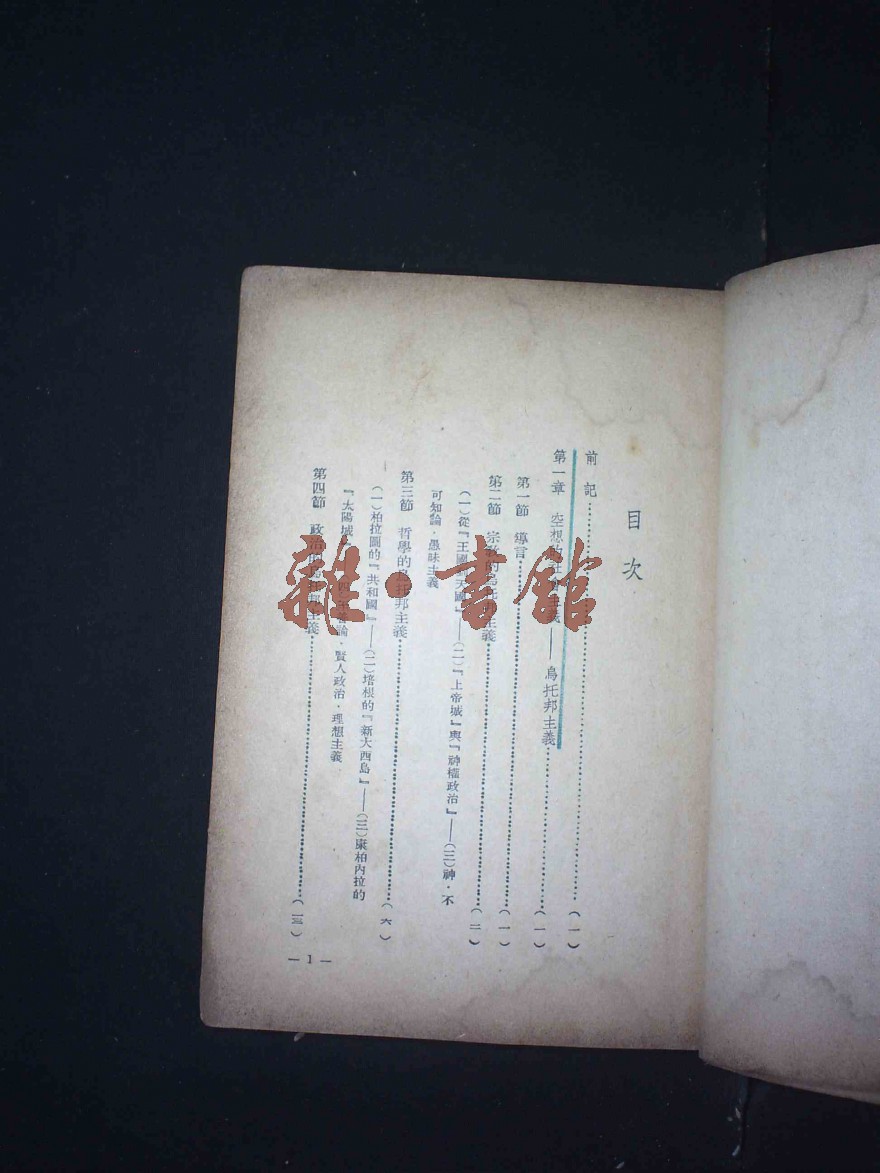 目次
前記……(一)
第一章 空想的 主義——烏托邦主義……(一)
第一節 導言……(一)
第二節 宗教的烏托邦主義……(二)
(一)從『王國 天國』——(二)『上帝城』與『神權政治』——(三)神·不
可知論·愚昧主義
第三節 哲學的烏托邦主義……(六)
(一)柏拉圖的『共和國』——(二)培根的『新大西島』——(三)康柏內拉的
『太陽城 論·賢人政治·理想主義
第四節 政治的烏托邦主義……(一三)
— 1 —
雜·書館